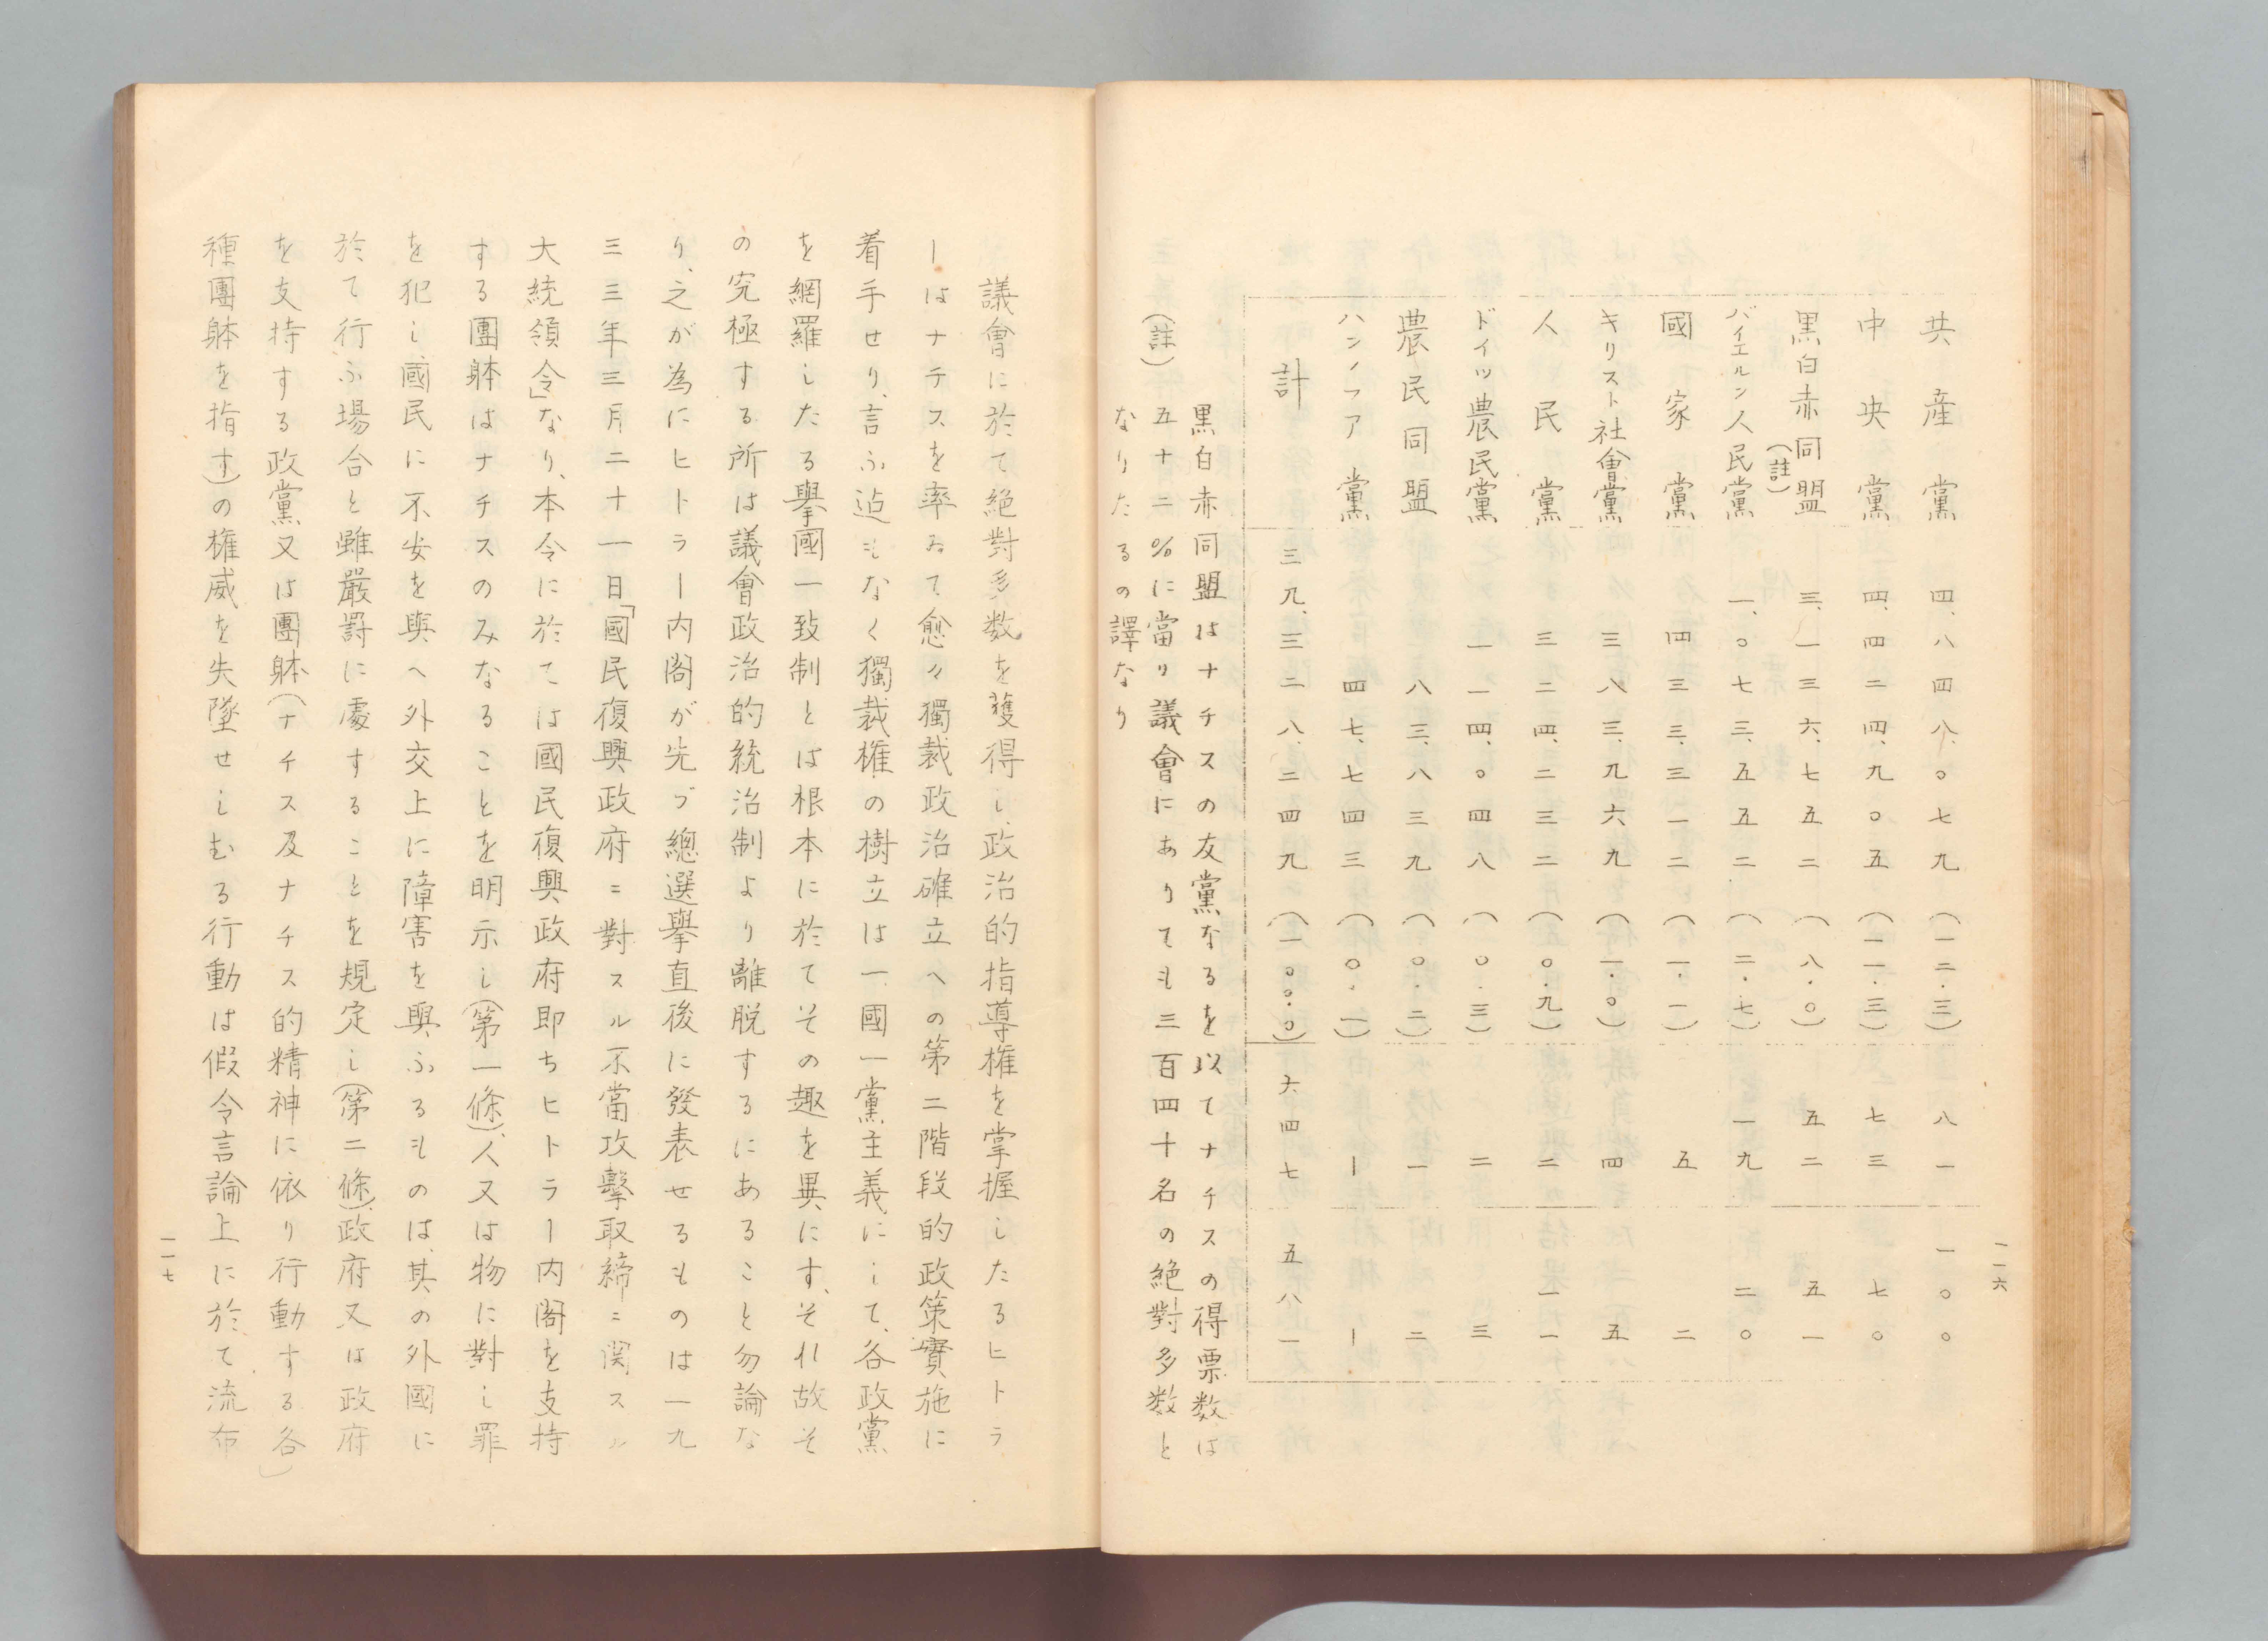 一一六
共産黨 四、八四八、〇七九 (一二・三) 八一 一〇〇
中央黨 四、四二四、九〇五 (一一・三) 七三 七〇
黒白赤同盟(註) 三、一三六、七五二 (八・〇) 五二 五一
バイエルン人民黨 一、〇七三、五五二 (二・七) 一九 二〇
國家黨 四三三、三一二 (一・一) 五 二
キリスト社會黨 三八三、九六九 (一・〇) 四 五
人民黨 三二四、二三二 (〇・九) 二 一一
ドイツ農民黨 一一四、〇四八 (〇・三) 二 三
農民同盟 八三、八三九 (〇・二) 一 二
ハンノファ黨 四七、七四三 (〇・一) ー ー
計 三九、三二八、二四九 (一〇〇・〇) 六四七 五八一
黒白赤同盟はナチスの友黨なるを以てナチスの得票数は
(註) 五十二%に當り議會にありても三百四十名の絶對多数と
なりたるの譯なり
議會に於て絶對多数を獲得し、政治的指導権を掌握したるヒトラ
ーはナチスを率ゐて愈々獨裁政治確立への第二階段的政策實施に
着手せり、言ふ迠もなく獨裁権の樹立は一國一黨主義にして、各政黨
を網羅したる擧國一致制とは根本に於てその趣を異にす、それ故そ
の究極する所は議會政治的統治制より離脱するにあること勿論な
り、之が為にヒトラー内閣が先づ總選擧直後に發表せるものは一九
三三年三月二十一日「國民復興政府ニ對スル不當攻擊取締ニ関スル
大統領令」なり、本令に於ては國民復興政府即ちヒトラー内閣を支持
する團躰はナチスのみなることを明示し(第一條)、人又は物に對し罪
を犯し、國民に不安を與へ外交上に障害を與ふるものは、其の外國に
於て行ふ場合と雖嚴罰に處することを規定し(第二條)、政府又は政府
を支持する政黨又は團躰(ナチス及ナチス的精神に依り行動する各
種團躰を指す)の権威を失墜せしむる行動は假令言論上に於て流布
一一七